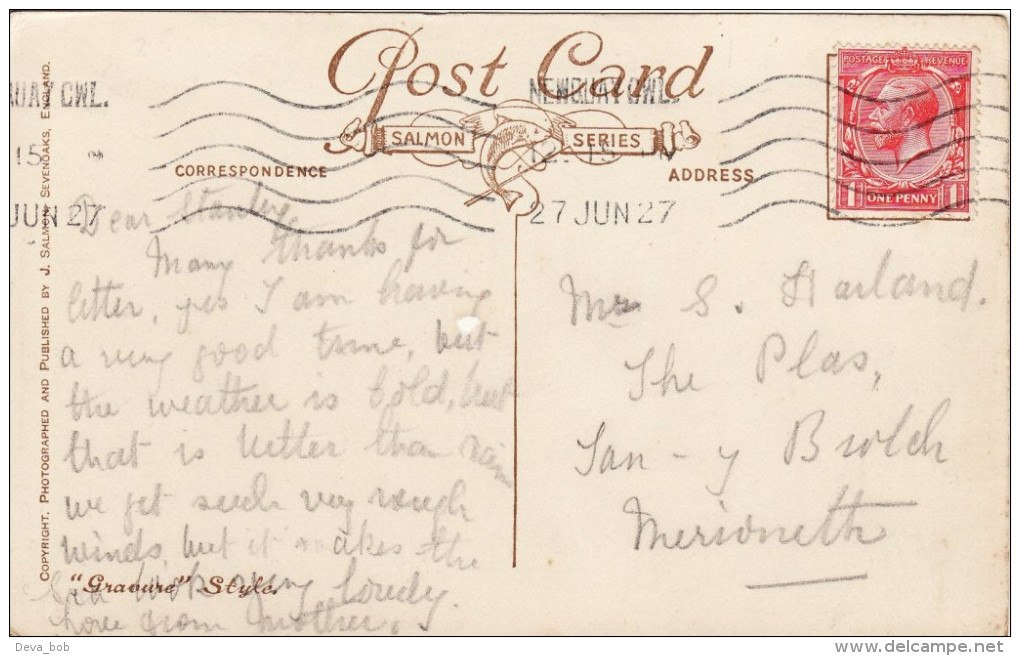 Post Card
SALMON SERIES
CORRESPONDENCE
ADDRESS
COPYRIGHT. PHOTOGRAPHED AND PUBLISHED BY J. SALMON, SEVENOAKS, ENGLAND.
QUAY CWL.
15
JUN 27
NEWQUAY CWL.
15 PM
27 JUN 27
POSTAGE REVENUE
1 ONE PENNY 1
Dear Stanley,
Many thanks for
letter, yes I am having
a very good time, but
the weather is Cold, but
that is better than rain
we get such very rough
winds, but it makes the
Sea look very lovely.
Love from Mother.
"Gravure" Style.
Mr S. Harland.
The Plas,
Tan-y Bwlch
Merioneth
Deva_bob